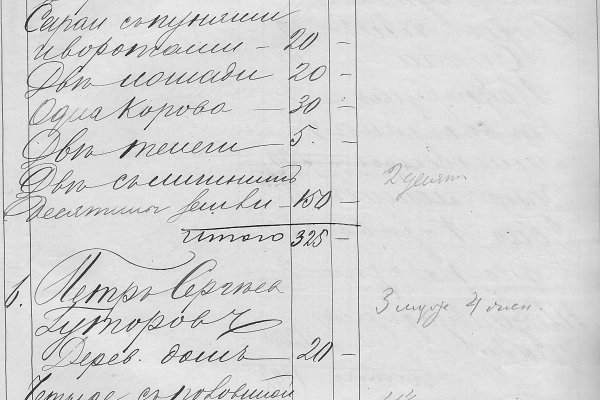 Сараи съ пунями
и воротами — 20 —
Двѣ лошади 20 —
Одна корова — 30 —
Двѣ телеги 5. —
Двѣ съ
Десятины земли — 150 —
2 десят
Итого 325 —
6. Петръ Сергѣев
Гуторовъ
3 муж 4 жен.
Дерев. домъ 20 —
Четыре съ половиной